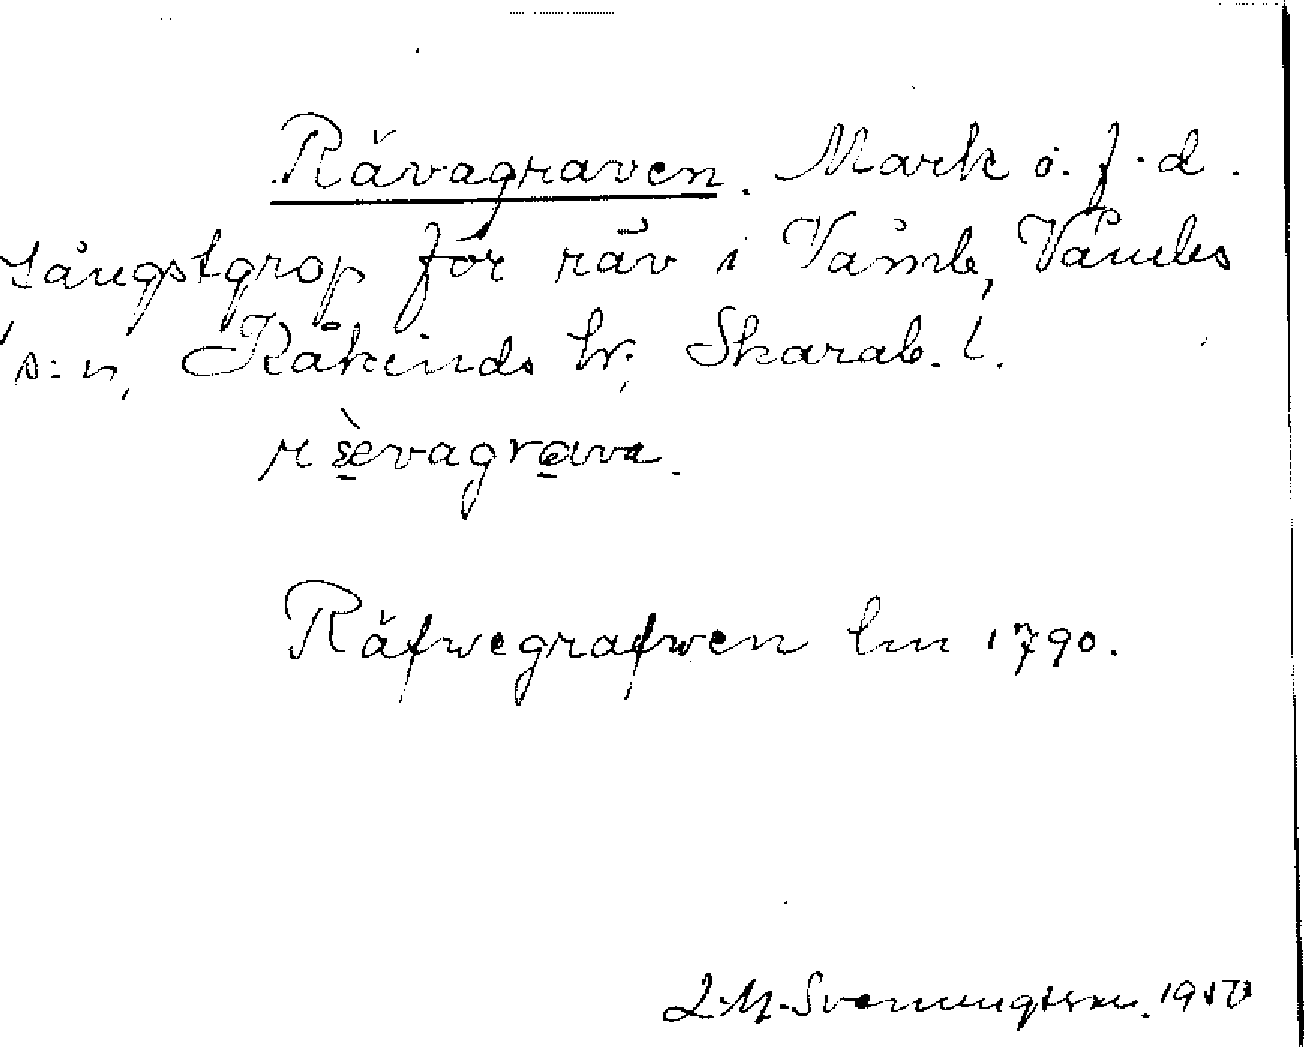 Rävagraven. Mark o. f.d.
fångstgrop för räv i Våmb, Våmbs
s:n, Kåkinds hr, Skarab. l.
rævagrava.
Räfwegrafwen lm 1790.
Svenningsson.